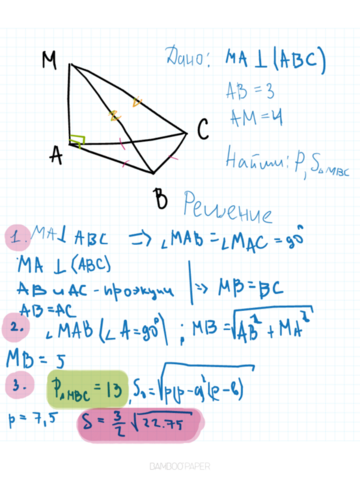 M
A
B
C
Дано: MA ⊥ (ABC)
AB = 3
AM = 4
Найти: P, S△MBC
Решение
1. MA ⊥ ABC ⇒ ∠MAB = ∠MAC = 90°
MA ⊥ (ABC)
AB и AC - проекции
AB = AC
⇒ MB = BC
2. ∠MAB (∠A = 90°) ; MB = √AB² + MA²
MB = 5
3. P△MBC = 13 , S△ = √p(p-a)²(p-b)
p = 7,5 S = 3/2 √22.75
DAMOOOPAPER